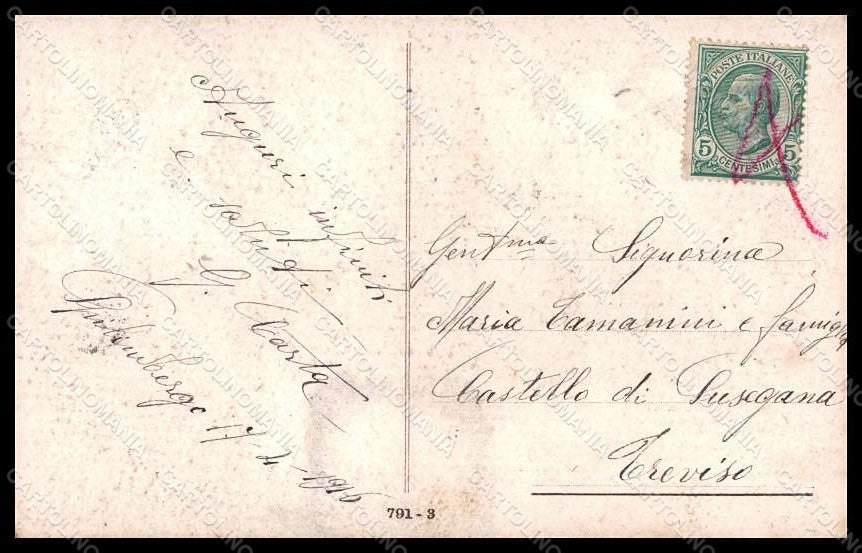 Auguri infiniti
e saluti
G. Carta
17-4-1916
POSTE ITALIANE
5 CENTESIMI 5
Gent.ma Signorina
Maria Tamanini e famiglia
Castello di Susegana
Treviso
791 - 3
CARTOLINOMANIA